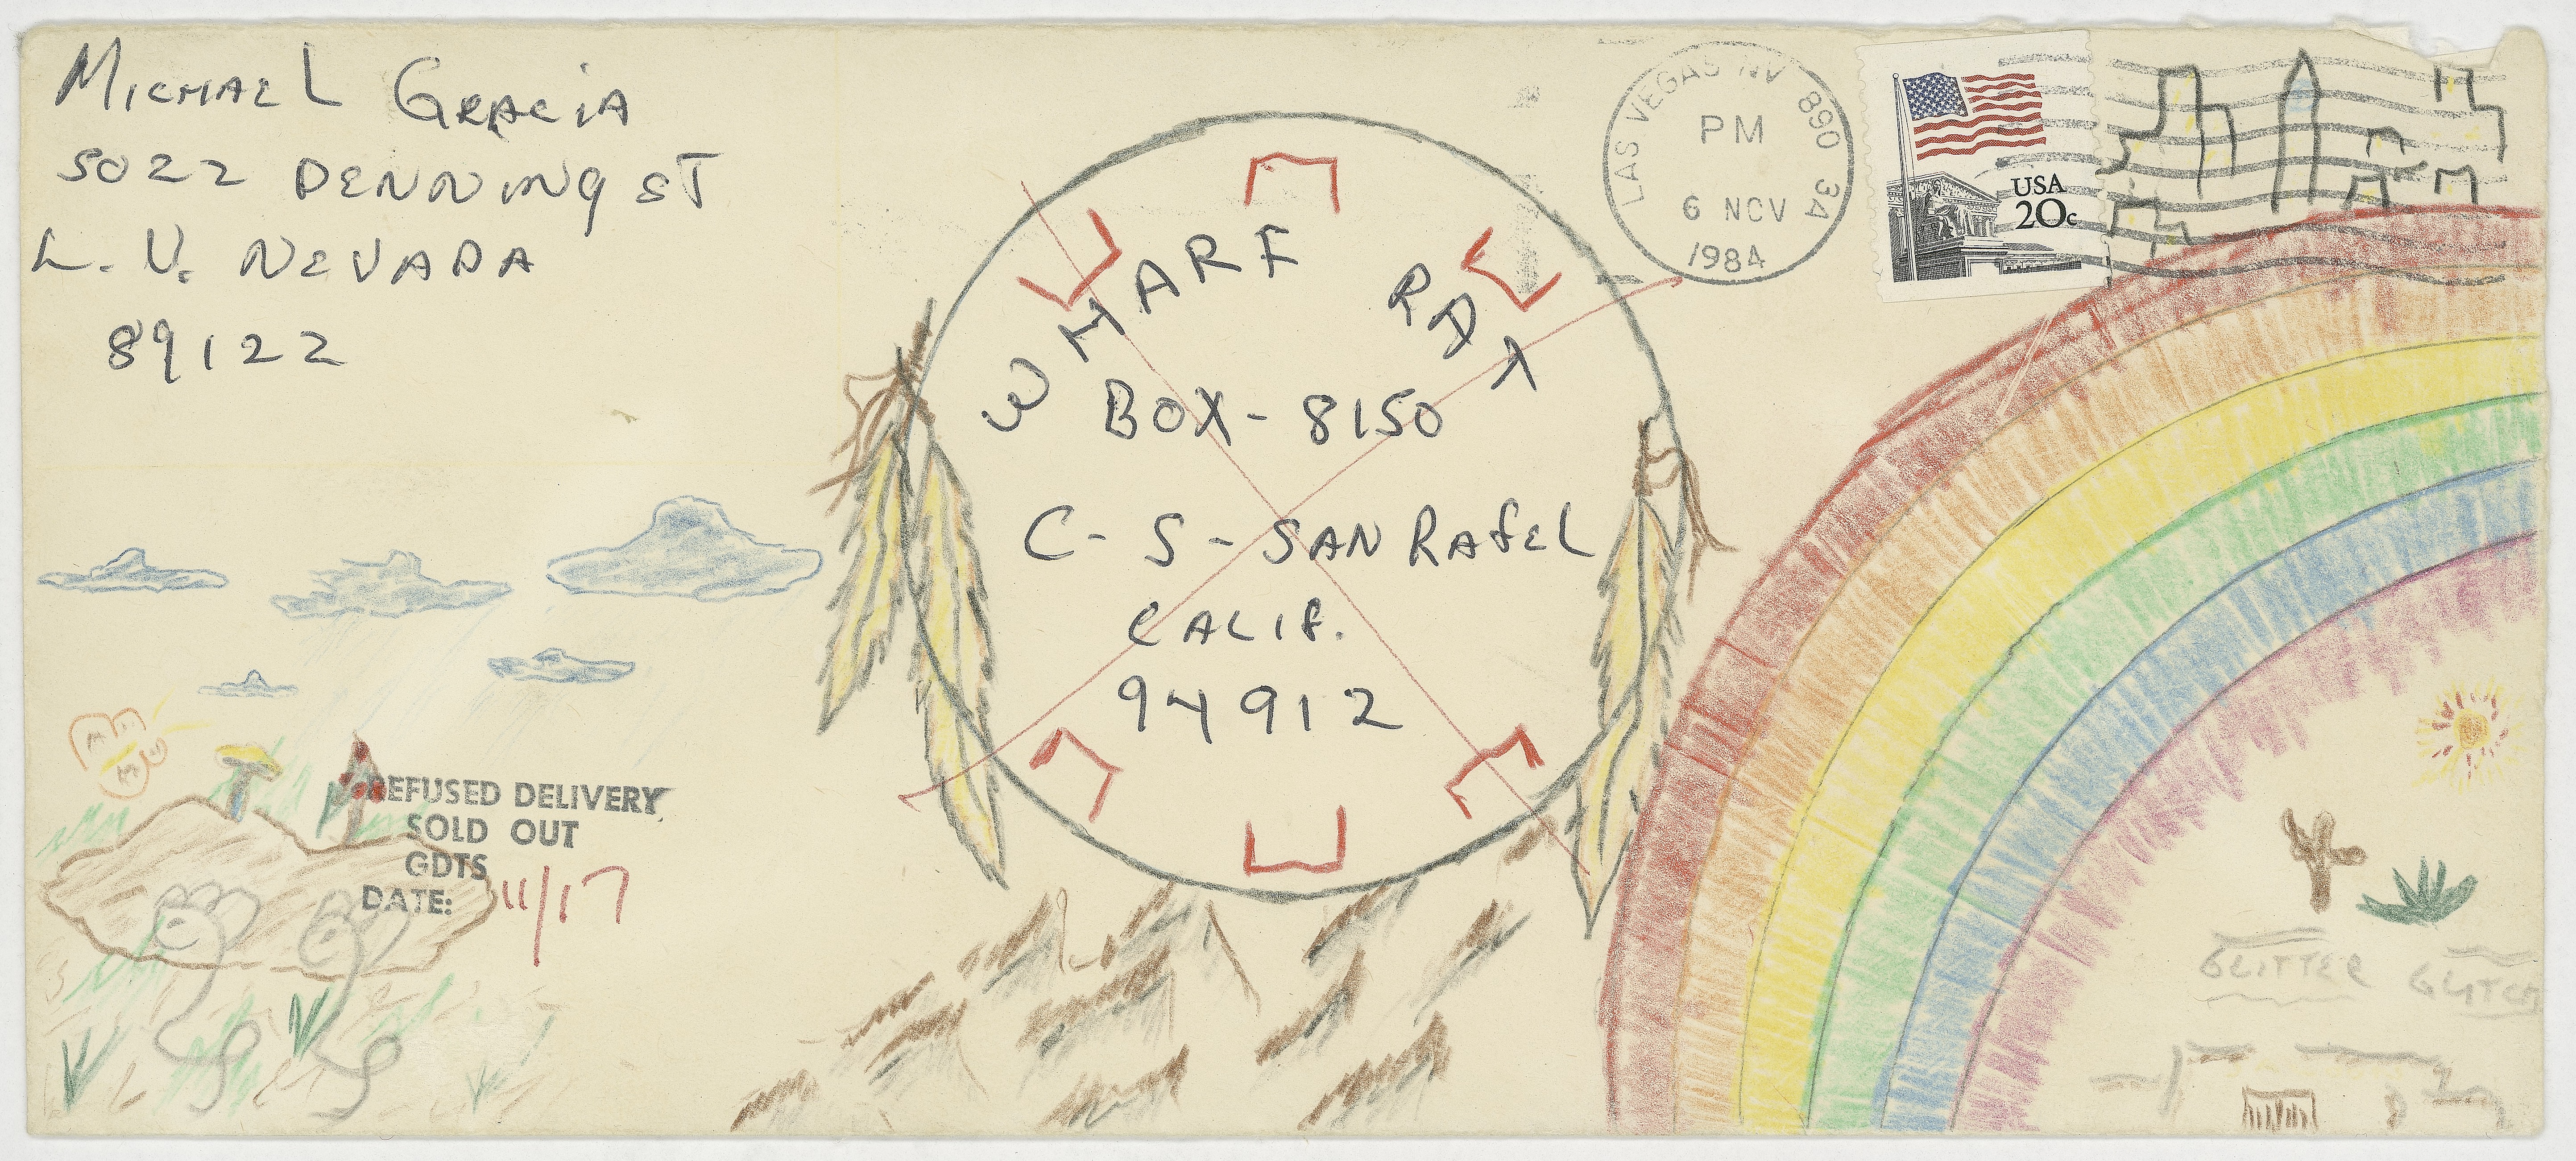 MICHAEL GRACIA
5022 DENNING ST
L. V. NEVADA
89122
LAS VEGAS NV 890 34
PM
6 NOV
1984
USA
20c
WHARF RAT
BOX - 8150
C - S - SAN RAFEL
CALIF.
94912
REFUSED DELIVERY
SOLD OUT
GDTS
DATE: 11/17
GLITTER